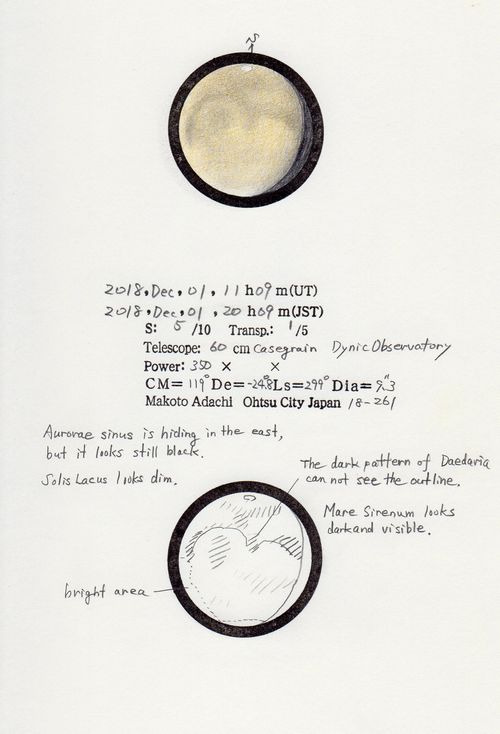 S
2018, Dec, 01, 11 h 09 m(UT)
2018, Dec, 01, 20 h 09 m(JST)
S: 5 /10 Transp.: 1/5
Telescope: 60 cm Casegrain Dynic Observatory
Power: 350 × ×
CM= 119° De= -24.8° Ls= 299° Dia= 9.3"
Makoto Adachi Ohtsu City Japan 18-261
Aurorae sinus is hiding in the east,
but it looks still black.
Solis Lacus looks dim.
The dark pattern of Daedaria
can not see the outline.
Mare Sirenum looks
dark and visible.
bright area